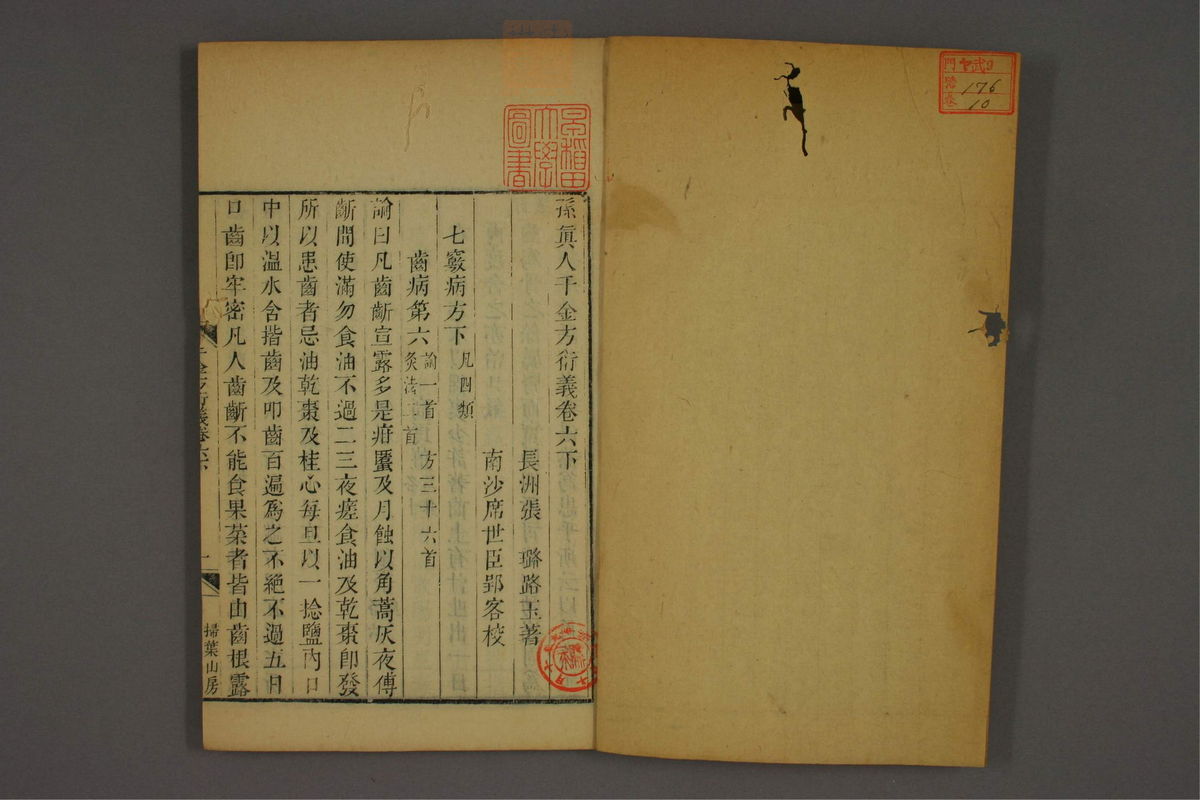 門 ヤ武9
號 176
卷 10
早稻田大學圖書
孫眞人千金方衍義卷六下
長洲張 璐路玉著
南沙席世臣郢客校
七竅病方下凡四類
齒病第六論一首 方三十六首
灸法二首
論曰凡齒齗宣露多是疳䘌及月蝕以角蒿灰夜傅
齗間使滿勿食油不過二三夜瘥食油及乾棗即發
所以患齒者忌油乾棗及桂心每旦以一捻鹽内口
中以溫水含揩齒及叩齒百遍爲之不絕不過五日
口齒卽牢密凡人齒齗不能食果菜者皆由齒根露
千金方衍義卷六
一
掃葉山房